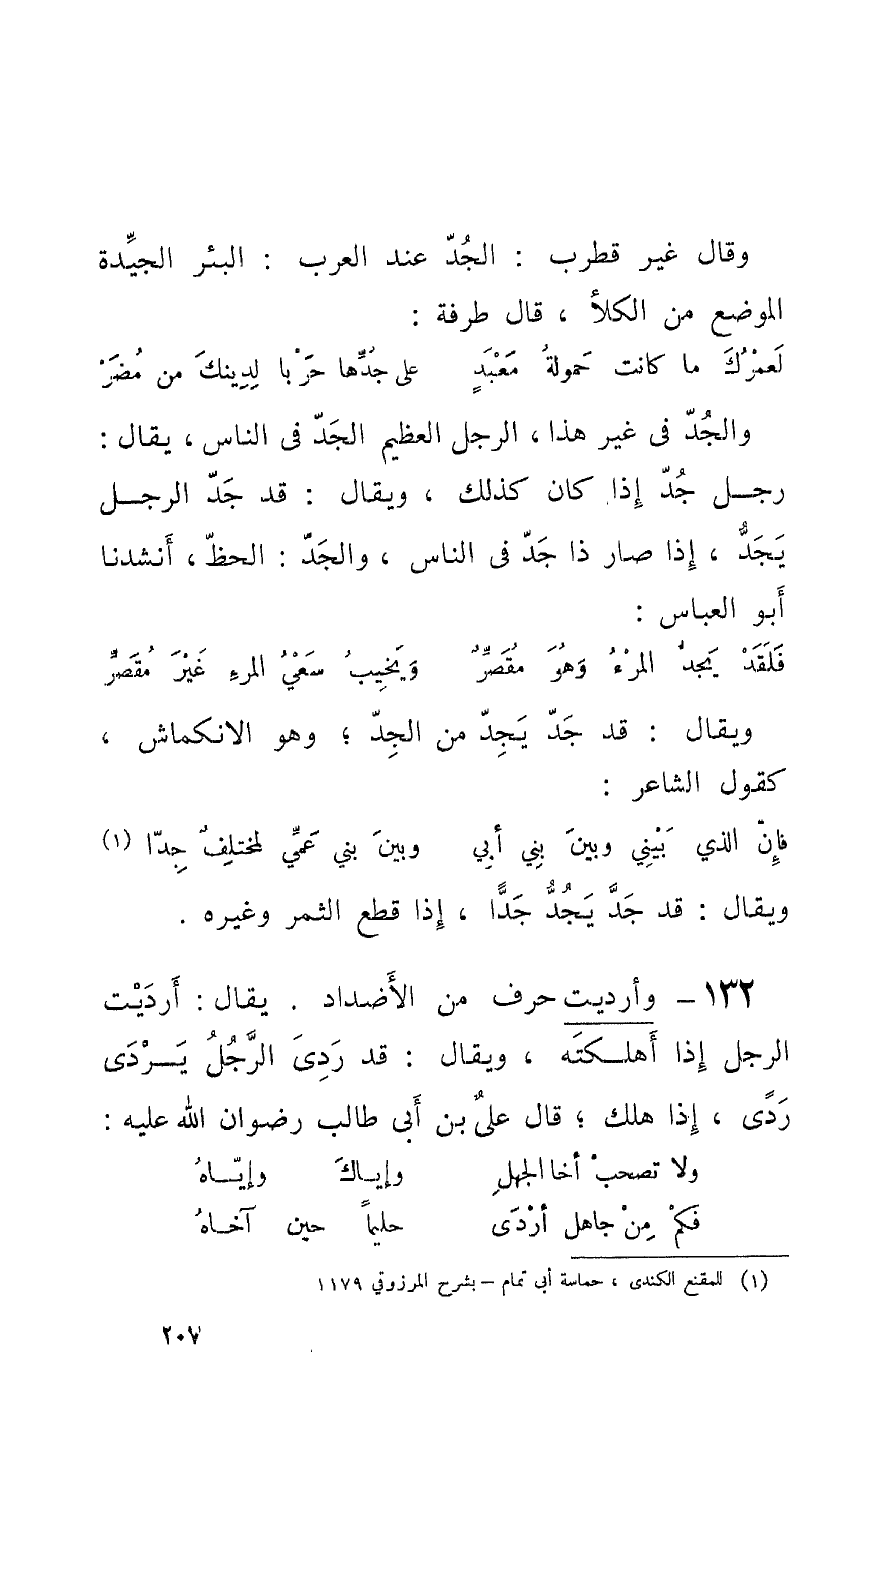 وقال غير قطرب : الجُدّ عند العرب : البئر الجيِّدة
الموضع من الكلأ ، قال طرفة :
لَعمْرُكَ ما كانت حَمولةُ مَعْبَدٍ على جُدِّها حَرْبا لِدِينكَ من مُضَرْ
والجُدّ فى غير هذا ، الرجل العظيم الجَدّ فى الناس ، يقال :
رجـل جُدّ إذا كان كذلك ، ويقال : قد جَدّ الرجـل
يَجَدُّ ، إذا صار ذا جَدّ فى الناس ، والجَدّ : الحظّ ، أَنشدنا
أَبو العباس :
فَلَقَدْ يَجدُّ المرْءُ وَهوَ مُقَصِّرٌ وَيَخِيبُ سَعْيُ المرءِ غَيْرَ مُقَصِّرِ
ويقال : قد جَدّ يَجِدّ من الجِدّ ؛ وهو الانكماش ،
كقول الشاعر :
فإِنّ الذي بَيْنِي وبينَ بِنِي أبِي وبينَ بني عَمِّي لمختلِفٌ جِدّا (١)
ويقال : قد جَدَّ يَجُدُّ جَدًّا ، إذا قطع الثمر وغيره .
١٣٢ – وأرديت حرف من الأَضداد . يقال : أَردَيْت
الرجل إذا أَهلـكتَه ، ويقال : قد رَدِىَ الرَّجُلُ يَـرْدَى
رَدًى ، إذا هلك ؛ قال علىُّ بن أَبى طالب رضوان الله عليه :
ولا تصحبْ أخا الجهلِ وإيـاكَ وإيّـاهُ
فَكمْ مِنْ جاهل أرْدَى حليماً حين آخـاهُ
(١) للمقنع الكندى ، حماسة أبى تمام – بشرح المرزوقي ١١٧٩
٢٠٧